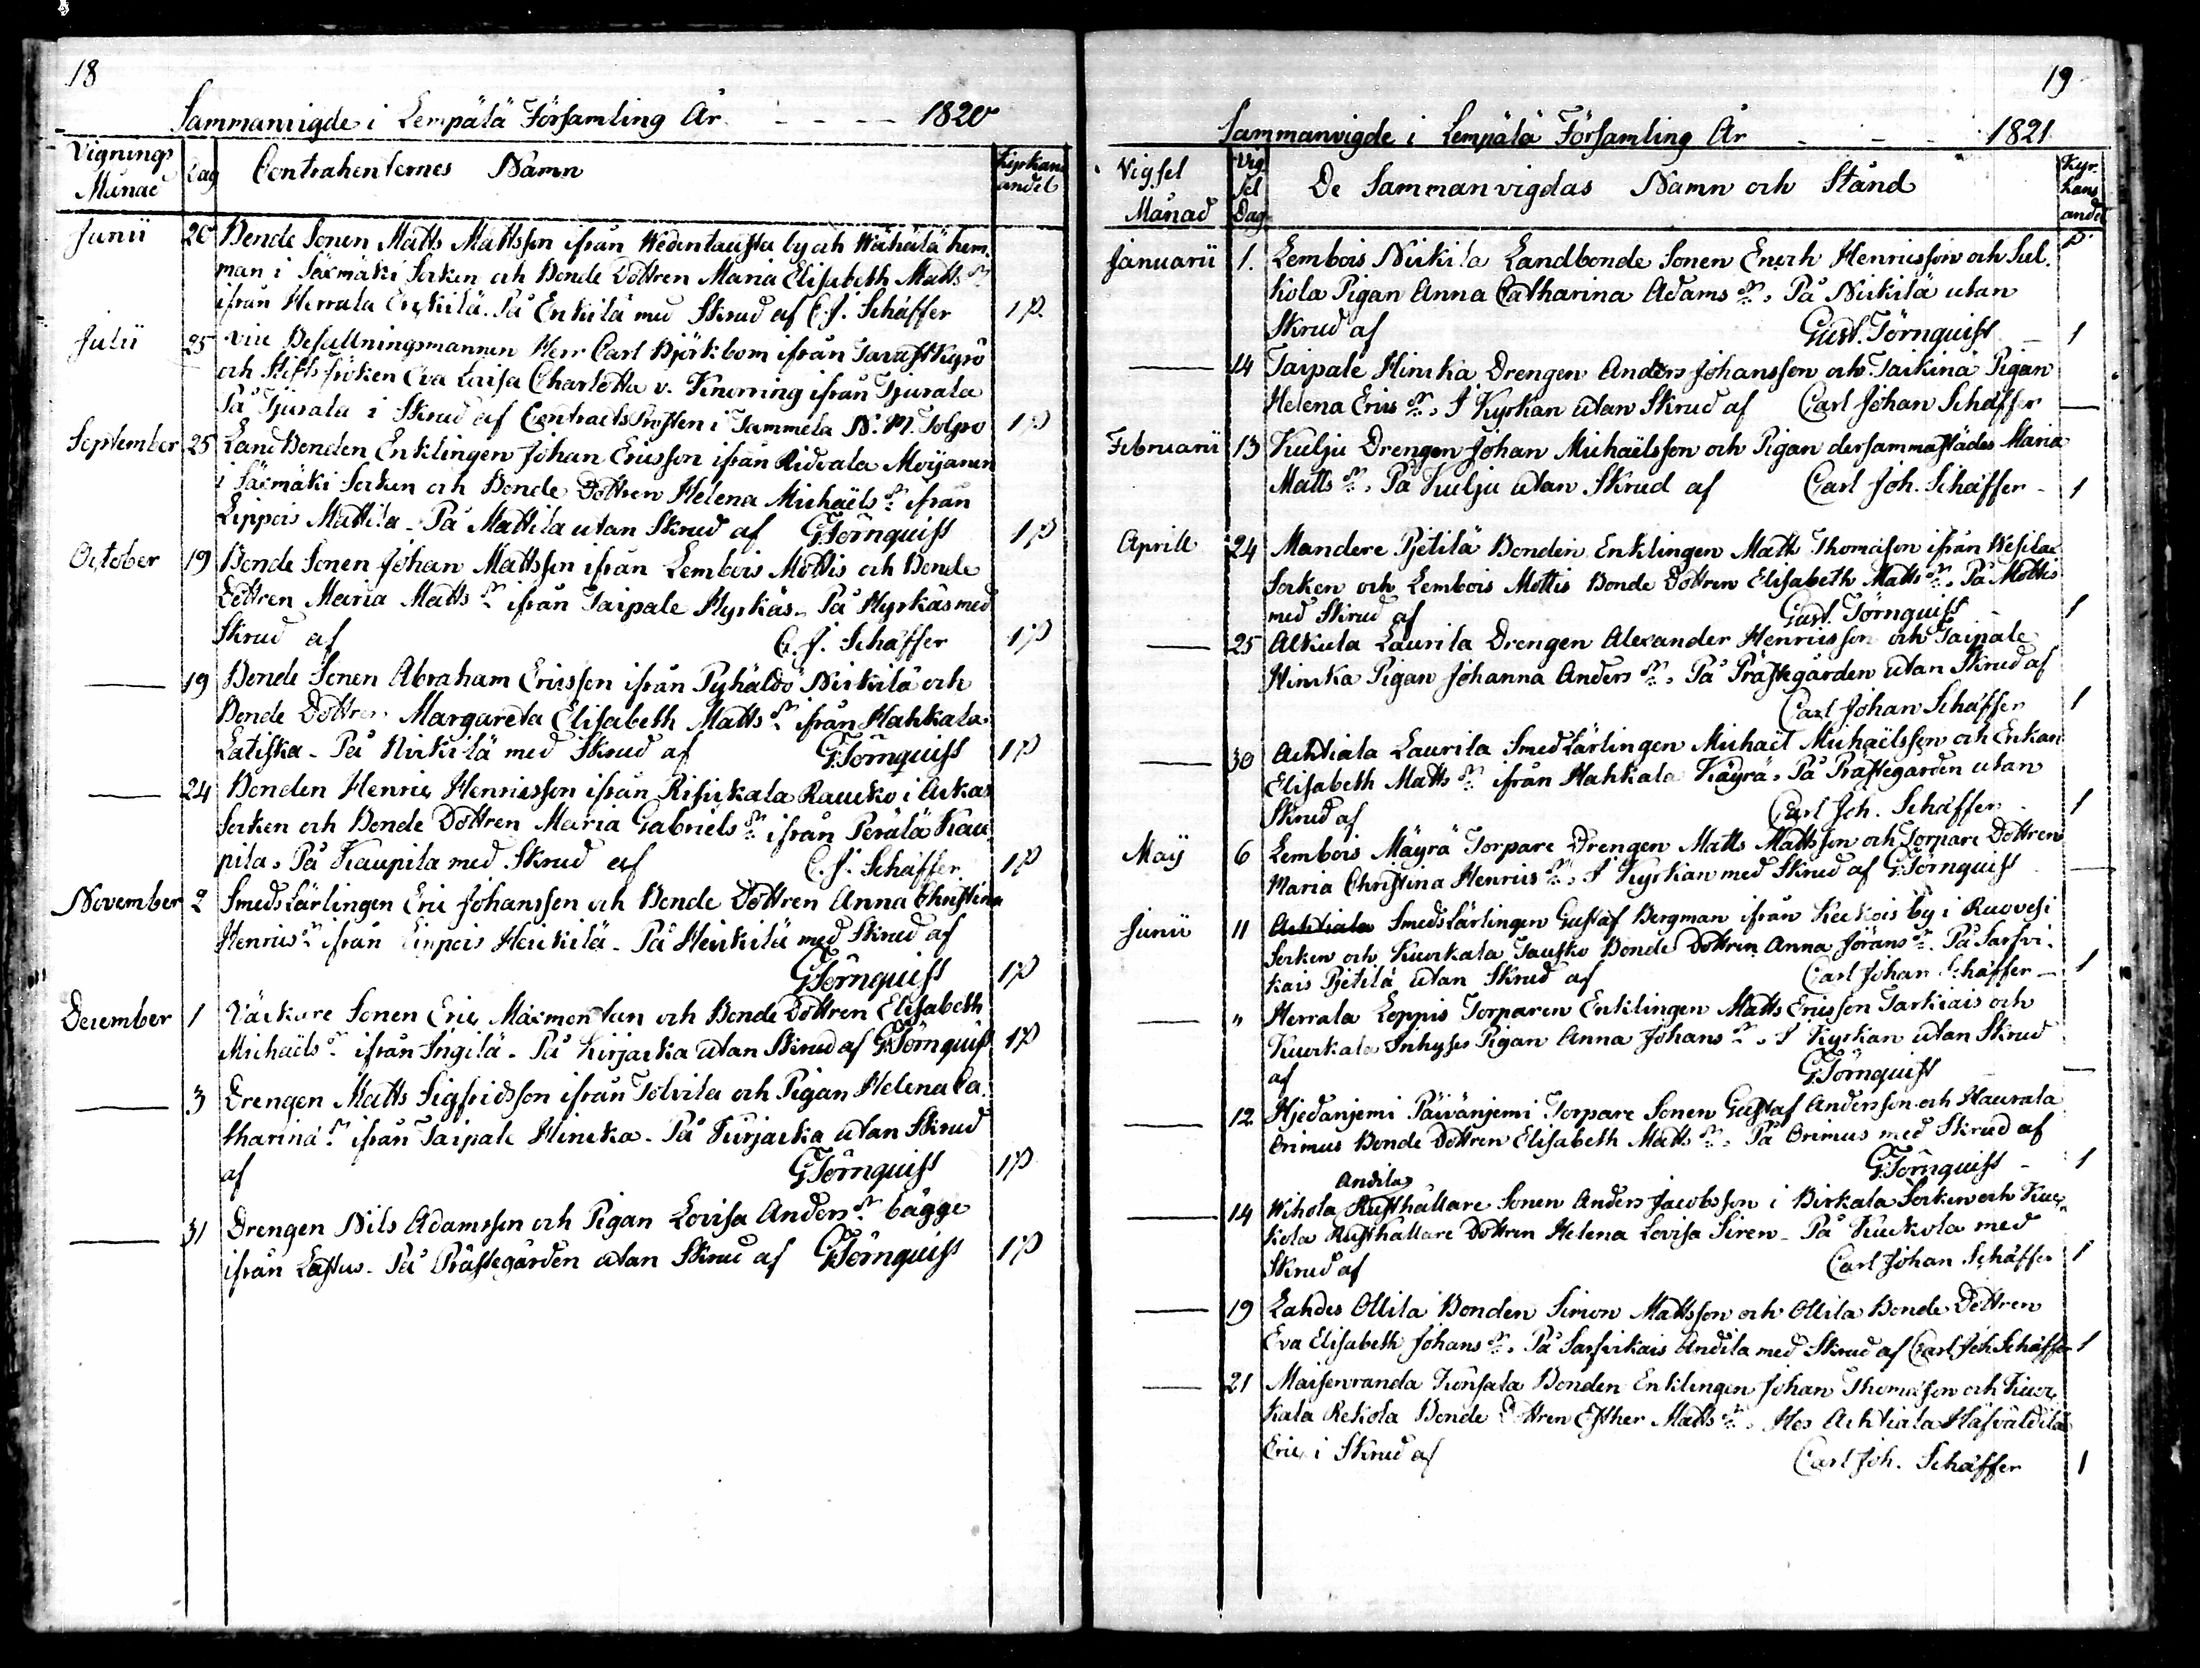 18
Sammanvigde i Lempälä Församling År - - - - 1820
Vignings Månad Dag Contrahenternes Namn Kyrkans andel
Junii 20 Bonde Sonen Matts Mattsson ifrån Wedentausta by och Wähälä hem-
man i Säxmäki Socken och Bonde Dottren Maria Elisabeth Matts dr
ifrån Herrala Enkilä. På Enkilä med Skrud af C. J. Schäffer 1 p
Julii 25 vice Befallningsmannen Herr Carl Björkbom ifrån Tavastkyro
och Stiftsfröken Eva Lovisa Charlotta v. Knorring ifrån Tjurala
På Tjurala i Skrud af Contracts Prosten i Tammela N. M. Tolpo 1 p
September 25 Land Bonden Enklingen Johan Ericsson ifrån Ridvala Moijanen
i Säxmäki Socken och Bonde Dottren Helena Michaëls dr ifrån
Lippois Mattila - På Mattila utan Skrud af G. Törnquist 1 p
October 19 Bonde Sonen Johan Mattsson ifrån Lembois Mottis och Bonde
Dottren Maria Matts dr ifrån Taipale Hyrkäs - På Hyrkäs med
Skrud af C. J. Schäffer 1 p
— 19 Bonde Sonen Abraham Ericsson ifrån Pyhäldö Nirkilä och
Bonde Dottren Margareta Elisabeth Matts dr ifrån Hahkala
Latiska - På Nirkilä med Skrud af G. Törnquist 1 p
— 24 Bonden Henric Henricsson ifrån Risikala Raucko i Ackas
Socken och Bonde Dottren Maria Gabriels dr ifrån Perälä Kau-
pila. På Kaupila med Skrud af C. J. Schäffer 1 p
November 2 Smeds Lärlingen Eric Johansson och Bonde Dottren Anna Christina
Henrics dr ifrån Lippois Heickilä - På Heickilä med Skrud af
G. Törnquist 1 p
December 1 Väckare Sonen Eric Maxmontan och Bonde Dottren Elisabeth
Michaëls dr ifrån Ingilä - På Kirjaska utan Skrud af G. Törnquist 1 p
— 3 Drengen Matts Sigfridsson ifrån Tolvila och Pigan Helena Ca-
tharina dr ifrån Taipale Hincka - På Kurjaska utan Skrud
af G. Törnquist 1 p
— 31 Drengen Nils Adamsson och Pigan Lovisa Anders dr bägge
ifrån Lastus - På Prästegården utan Skrud af G. Törnquist 1 p
19
Sammanvigde i Lempälä Församling År - - - 1821
Vigsel Månad Vigsel Dag De Sammanvigdas Namn och Stånd Kyrkans andel
Januarii 1. Lembois Nirkila Landbonde Sonen Erich Henricsson och Sul- p
kola Pigan Anna Catharina Adams dr. På Nirkilä utan
Skrud af Gust. Törnquist - 1
— 14 Taipale Hincka Drengen Anders Johansson och Taikina Pigan
Helena Erics dr. I Kyrkan utan Skrud af Carl Johan Schäffer —
Februarii 13 Kulju Drengen Johan Michaëlsson och Pigan dersammastädes Maria
Matts dr. På Kulju utan Skrud af Carl Joh. Schäffer - 1
Aprill 24 Mandere Pjetilä Bonden Enklingen Matts Thomasson ifrån Wesilax
Socken och Lembois Mottis Bonde Dottren Elisabeth Matts dr. På Mottis
med Skrud af Gust. Törnquist - 1
— 25 Alkula Laurila Drengen Alexander Henricsson och Taipale
Hincka Pigan Johanna Anders dr. På Prästegården utan Skrud af
Carl Johan Schäffer 1
— 30 Achtiala Laurila Smed Lärlingen Michaël Michaëlsson och Enkan
Elisabeth Matts dr ifrån Hahkala Käyrä. På Prästegården utan
Skrud af Carl Joh. Schäffer - 1
Maij 6 Lembois Mäyrä Torpare Drengen Matts Mattsson och Torpare Dottren
Maria Christina Henrics dr. I Kyrkan med Skrud af G. Törnquist —
Junii 11 Achtiala Smeds Lärlingen Gustaf Bergman ifrån Keckois by i Ruovesi
Socken och Kuockala Jausko Bonde Dottren Anna Jörans dr. På Sarsvi-
kais Pjetilä utan Skrud af Carl Johan Schäffer — 1
— " Herrala Loppis Torparen Enklingen Matts Ericsson Tarkiais och
Kuockala Inhyses Pigan Anna Johans dr. I Kyrkan utan Skrud
af G. Törnquist —
— 12 Hjedanjemi Päivänjemi Torpare Sonen Gustaf Andersson och Haurala
Orimus Bonde Dottren Elisabeth Matts dr. På Orimus med Skrud af
G. Törnquist - 1
Andila
— 14 Wihola Rusthållare Sonen Anders Jacobsson i Birkala Socken och Kuc-
kola Rusthållare Dottren Helena Lovisa Siren - På Kuckola med
Skrud af Carl Johan Schäffer 1
— 19 Lahdes Ollila Bonden Simon Mattsson och Ollila Bonde Dottren
Eva Elisabeth Johans dr. På Sarsvikais Andila med Skrud af Carl Joh. Schäffer 1
— 21 Maisenranda Konsala Bonden Enklingen Johan Thomasson och Kuoc-
kala Rekola Bonde Dottren Esther Matts dr. Hos Achtiala Hafvaldila
Eric i Skrud af Carl Joh. Schäffer 1